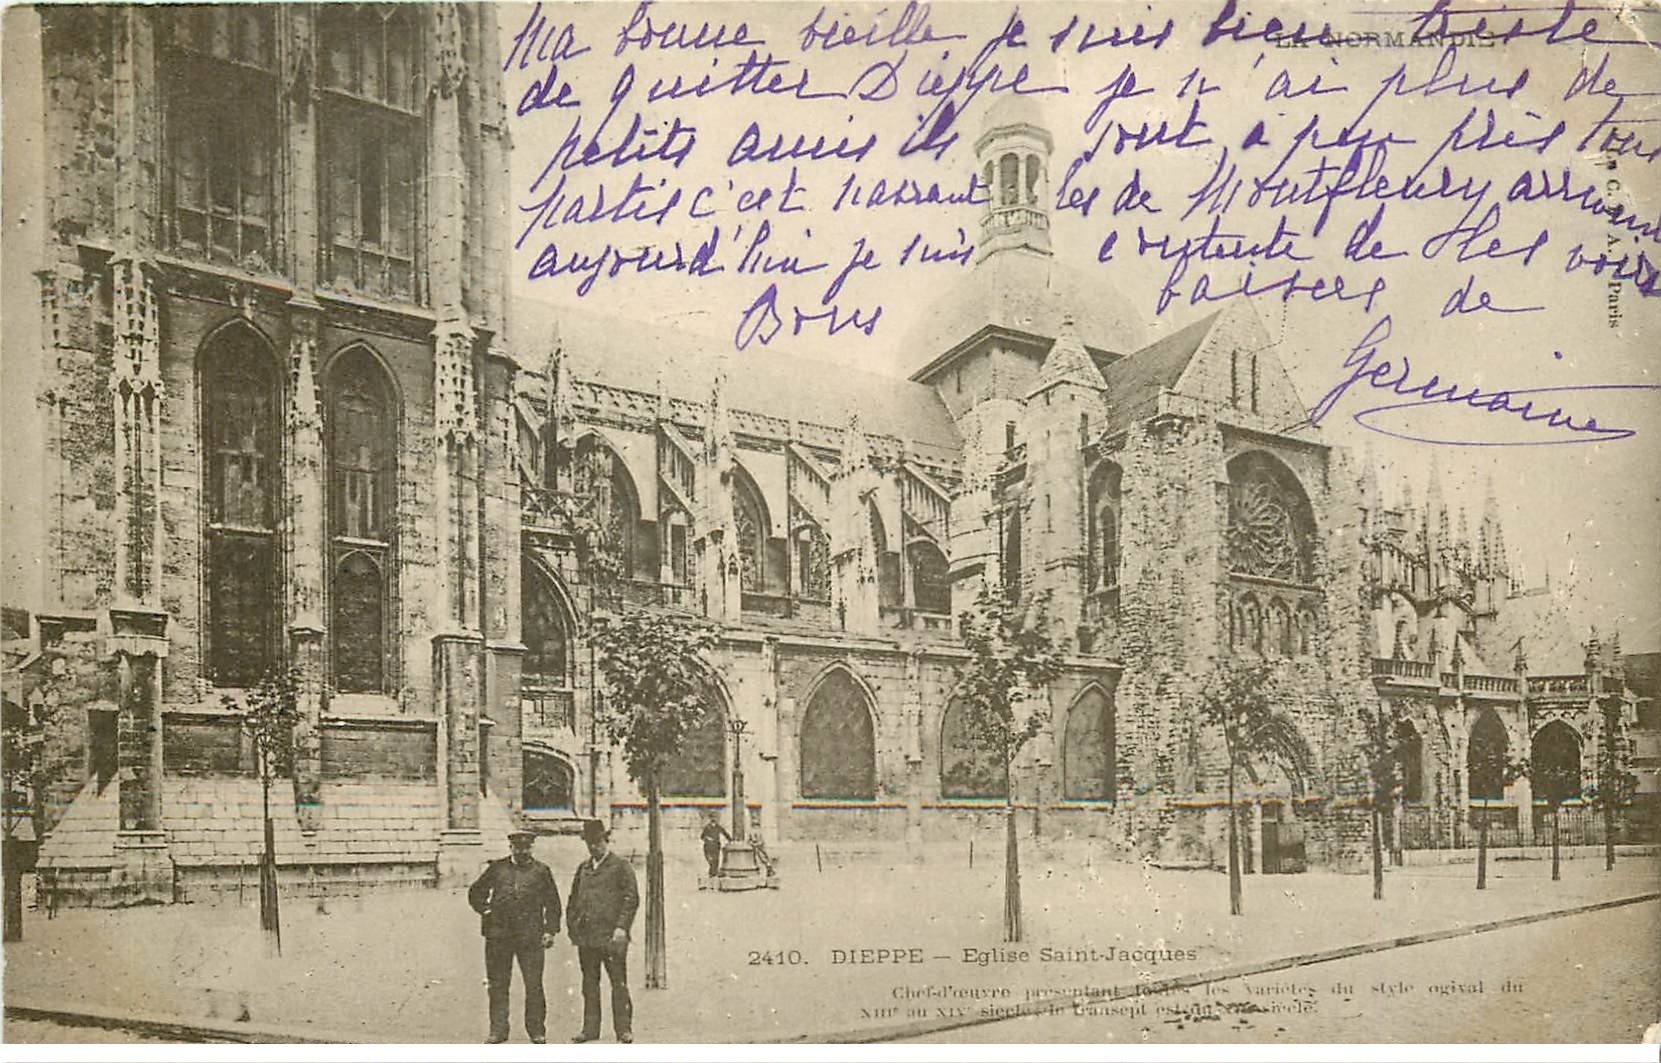 Ma bonne vieille je suis bien triste
LA NORMANDIE
de quitter Dieppe je n'ai plus de
petits amis ils sont à peu près tous
partis c'est navrant les de Montfleury arrivent
aujourd'hui je suis contente de les voir
Bons baisers de
Germaine
C. A. Paris
2410. DIEPPE — Eglise Saint-Jacques
Chef-d'œuvre présentant toutes les variétés du style ogival du
XIIIe au XIVe siècle, le transept est du siècle.